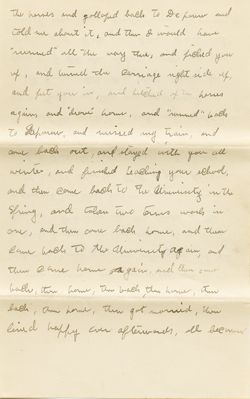 the horses and galloped back to De pauw and
told me about it, and then I would have
"runned" all the way there, and picked you
up, and turned the carriage right side up,
and put you in, and hitched up the horses
again and "drove" home, and "runned" back
to Depauw, and missed my train, and
come back out, and stayed with you all
winter, and finished teaching your school,
and then come back to the University in the
Spring, and taken two terms work in
one, and then come back home, and then
came back to the University again, and
then came home again, and then come
back, then home, then back, then home, then
back, then home, then got married, then
lived happy ever afterwards, all because